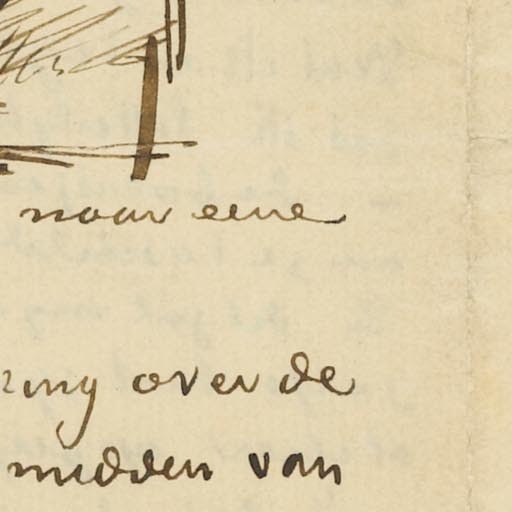 naar eene
over de
midden van